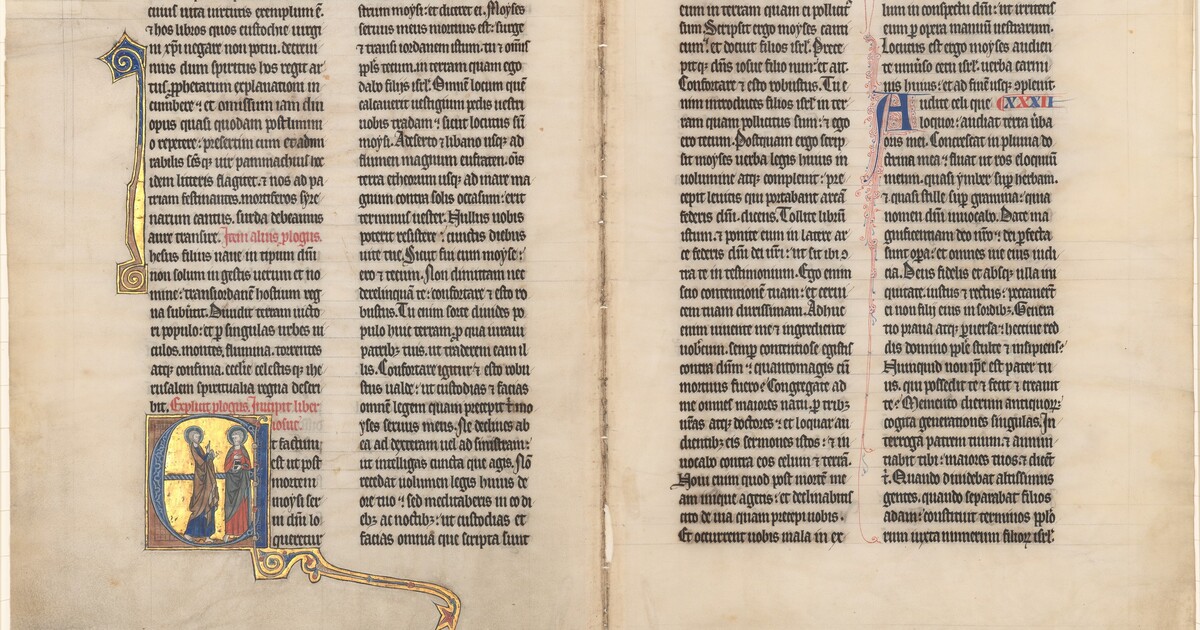 cuius iuxta virtutis exemplum ē.
⁊ hos libros quos eustochie virgi
ni xp̄i negare non potui. decrevi
mus dum spiritus hos regit ar
tus. p̱phetarum explanationi in
cumbere ⁊ et omissum iam diu
opus quasi quodam postliminii
o repetere: presertim cum et admi
rabilis sc̄sq̨ vir pammachius hoc
idem litteris flagitet. ⁊ nos ad pa
triam festinantes. mortiferos syre
narum cantus. surda debeamus
aure transire. Item alius ꝓlogus.
hesus filius nave in tipum dn̄i
non solum in gestis verum et no
mine: transi iordanē hostium reg
na subvertit. Dividit terram victo
ri populo: et ꝑ singulas urbes vi
culos. montes. flumina. torrentes
atq̨ confinia. ecclīe celestisq̨ ihe
rusalem spiritualia regna descri
bit. Explicit ꝓlogus. Incipit liber
iosue.
Et factum
est ut post
mortem
moysi ser
vi dn̄i lo
queretur
strum moysi: et diceret ei. Moyses
servus meus mortuus est: surge
⁊ transi iordanem istum: tu ⁊ omīs
ppl̄s tecum. in terram quam ego
dabo filijs isrl̄. Omnē locum quē
calcaverit vestigium pedis vestri
vobis tradam: sicut locutus sū
moysi. A deserto ⁊ libano usq̨ ad
flumen magnum eufraten. om̄s
terra etheorum usq̨ ad mare ma
gnum contra solis occasum: erit
terminus vester. Nullus vobis
poterit resistere: cunctis diebus
vite tue. Sicut fui cum moyse:
ero ⁊ tecum. Non dimittam nec
derelinquā te: confortare ⁊ esto ro
bustus. Tu enim sorte divides po
pulo huic terram. ꝓ qua iuravi
patribꝫ tuis. ut traderem eam il
lis. Confortare igitur ⁊ esto robu
stus valde: ut custodias ⁊ facias
omnē legem quam precepit t̄ mo
yses servus meus. Ne declines ab
ea ad dexteram vel ad sinistram:
ut intelligas cuncta que agis. Nō
recedat volumen legis huius de
ore tuo: sed meditaberis in eo di
ebꝫ ac noctibꝫ: ut custodias et
facias omnia que scripta sunt
eum in terram quam ei pollicit᷒
sum. Scripsit ergo moyses canti
cum: et docuit filios isrl̄. Prece
pitq̨ dn̄s iosue filio nun: et ait.
Confortare ⁊ esto robustus. Tu e
nim introduces filios isrl̄ in ter
ram quam pollicitus sum: ⁊ ego
ero tecum. Postquam ergo scrip
sit moyses verba legis huius in
volumine atq̨ complevit: pre
cepit levitis qui portabant arcā
federis dn̄i. dicens. Tollite librū
istum. ⁊ ponite eum in latere ar
ce federis dn̄i dei vr̄i: ut sit ibi ↄ
tra te in testimonium. Ego enim
scio contentionē tuam: et cervi
cem tuam durissimam. Adhuc
enim vivente me ⁊ ingrediente
vobiscum. semp̱ contentiose egistis
contra dn̄m: quantomagis cū
mortuus fuero? Congregate ad
me omnes maiores natu. ꝑ tribꝫ
vr̄as atq̨ doctores: et loquar au
dientibꝫ eis sermones istos: ⁊ in
vocabo contra eos celum ⁊ terrā.
Novi enim quod post mortē me
am inique agetis: et declinabitis
cito de via quam precepi vobis.
Et occurrent vobis mala in ex
lum in conspectu dn̄i: ut irritetis
eum ꝑ opera manuū vestrarum.
Locutus est ergo moyses audien
te universo cetu isrl̄. verba carmi
nis huius: et ad finē usq̨ ↄplevit.
Audite celi que XXXII
loquor: audiat terra v̄ba
oris mei. Concrescat in pluvia do
ctrina mea: fluat ut ros eloquiū
meum. quasi ymber sup̱ herbam.
⁊ quasi stille sup̱ gramina: quia
nomen dn̄i invocabo. Date ma
gnificentiam deo nr̄o: dei ꝑfecta
sunt oꝑa: et omnes vie eius iudi
cia. Deus fidelis et absq̨ ulla ini
quitate. iustus ⁊ rectus: peccaverūt
ei non filij eius in sordibꝫ. Genera
tio prava atq̨ ꝑversa: heccine red
dis domino pp̄le stulte ⁊ insipiens?
Nunquid non ip̄e est pater tu
us. qui possedit te ⁊ fecit ⁊ creavit
te? Memento dierum antiquoꝝ:
cogita generationes singulas. In
terroga patrem tuum. ⁊ annun
tiabit tibi: maiores tuos: ⁊ dicēt
t̄. Quando dividebat altissimus
gentes. quando separabat filios
adam: constituit terminos pp̄lo
rum iuxta numerum filioꝝ isrl̄.